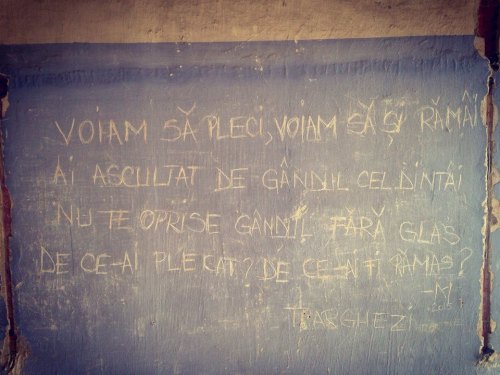 VOIAM SĂ PLECI, VOIAM SĂ ȘI RĂMÂI
AI ASCULTAT DE GÂNDUL CEL DINTÂI
NU TE OPRISE GÂNDUL FĂRĂ GLAS
DE CE-AI PLECAT? DE CE-AI FI RĂMAS?
T. ARGHEZI